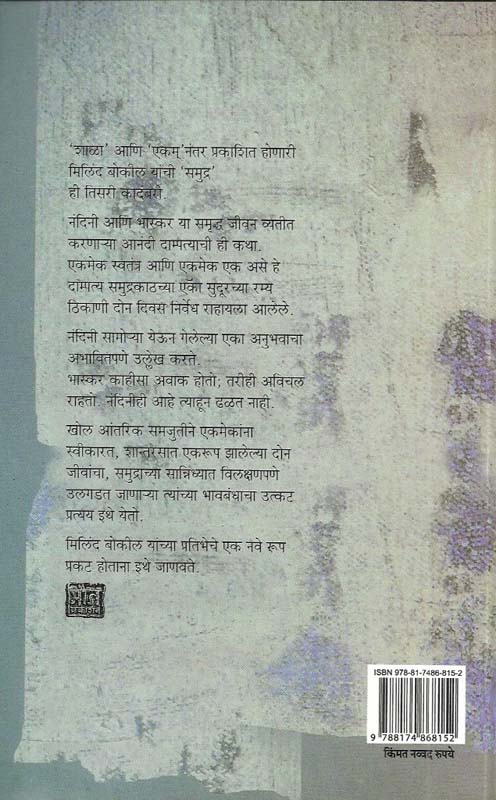 'शाळा' आणि 'एकम्'नंतर प्रकाशित होणारी
मिलिंद बोकील यांची 'समुद्र'
ही तिसरी कादंबरी.
नंदिनी आणि भास्कर या समृद्ध जीवन व्यतीत
करणाऱ्या आनंदी दाम्पत्याची ही कथा.
एकमेक स्वतंत्र आणि एकमेक एक असे हे
दांम्पत्य समुद्रकाठच्या एका सुदूरच्या रम्य
ठिकाणी दोन दिवस निर्वेध राहायला आलेले.
नंदिनी सामोऱ्या येऊन गेलेल्या एका अनुभवाचा
अभावितपणे उल्लेख करते.
भास्कर काहीसा अवाक होतो; तरीही अविचल
राहतो. नंदिनीही आहे त्याहून ढळत नाही.
खोल आंतरिक समजुतीने एकमेकांना
स्वीकारत, शान्तरसात एकरूप झालेल्या दोन
जीवांचा, समुद्राच्या सान्निध्यात विलक्षणपणे
उलगडत जाणाऱ्या त्यांच्या भावबंधाचा उत्कट
प्रत्यय इथे येतो.
मिलिंद बोकील यांच्या प्रतिभेचे एक नवे रूप
प्रकट होताना इथे जाणवते.
मौज
प्रकाशन
ISBN 978-81-7486-815-2
9 788174 868152
किंमत नव्वद रुपये